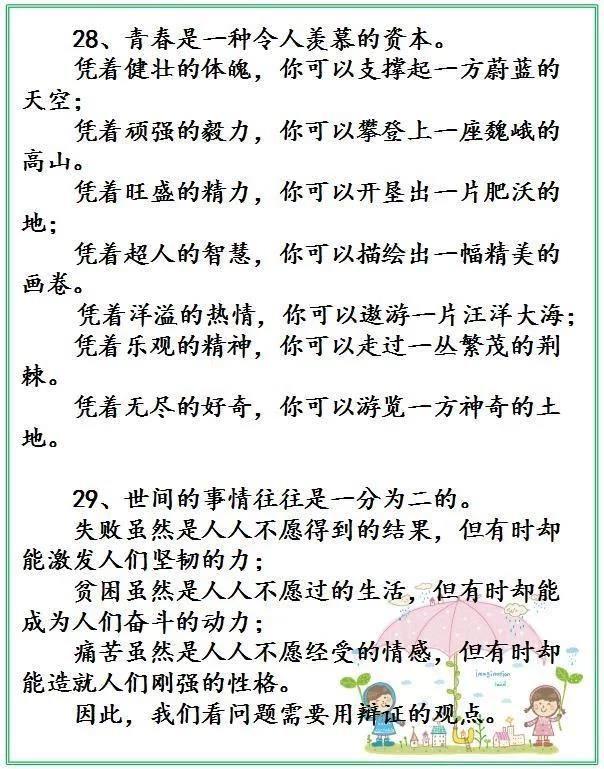 28、青春是一种令人羡慕的资本。
凭着健壮的体魄，你可以支撑起一方蔚蓝的
天空；
凭着顽强的毅力，你可以攀登上一座巍峨的
高山。
凭着旺盛的精力，你可以开垦出一片肥沃的
地；
凭着超人的智慧，你可以描绘出一幅精美的
画卷。
凭着洋溢的热情，你可以遨游一片汪洋大海；
凭着乐观的精神，你可以走过一丛繁茂的荆
棘。
凭着无尽的好奇，你可以游览一方神奇的土
地。
29、世间的事情往往是一分为二的。
失败虽然是人人不愿得到的结果，但有时却
能激发人们坚韧的力；
贫困虽然是人人不愿过的生活，但有时却能
成为人们奋斗的动力；
痛苦虽然是人人不愿经受的情感，但有时却
能造就人们刚强的性格。
imagination
因此，我们看问题需要用辩证的观点。